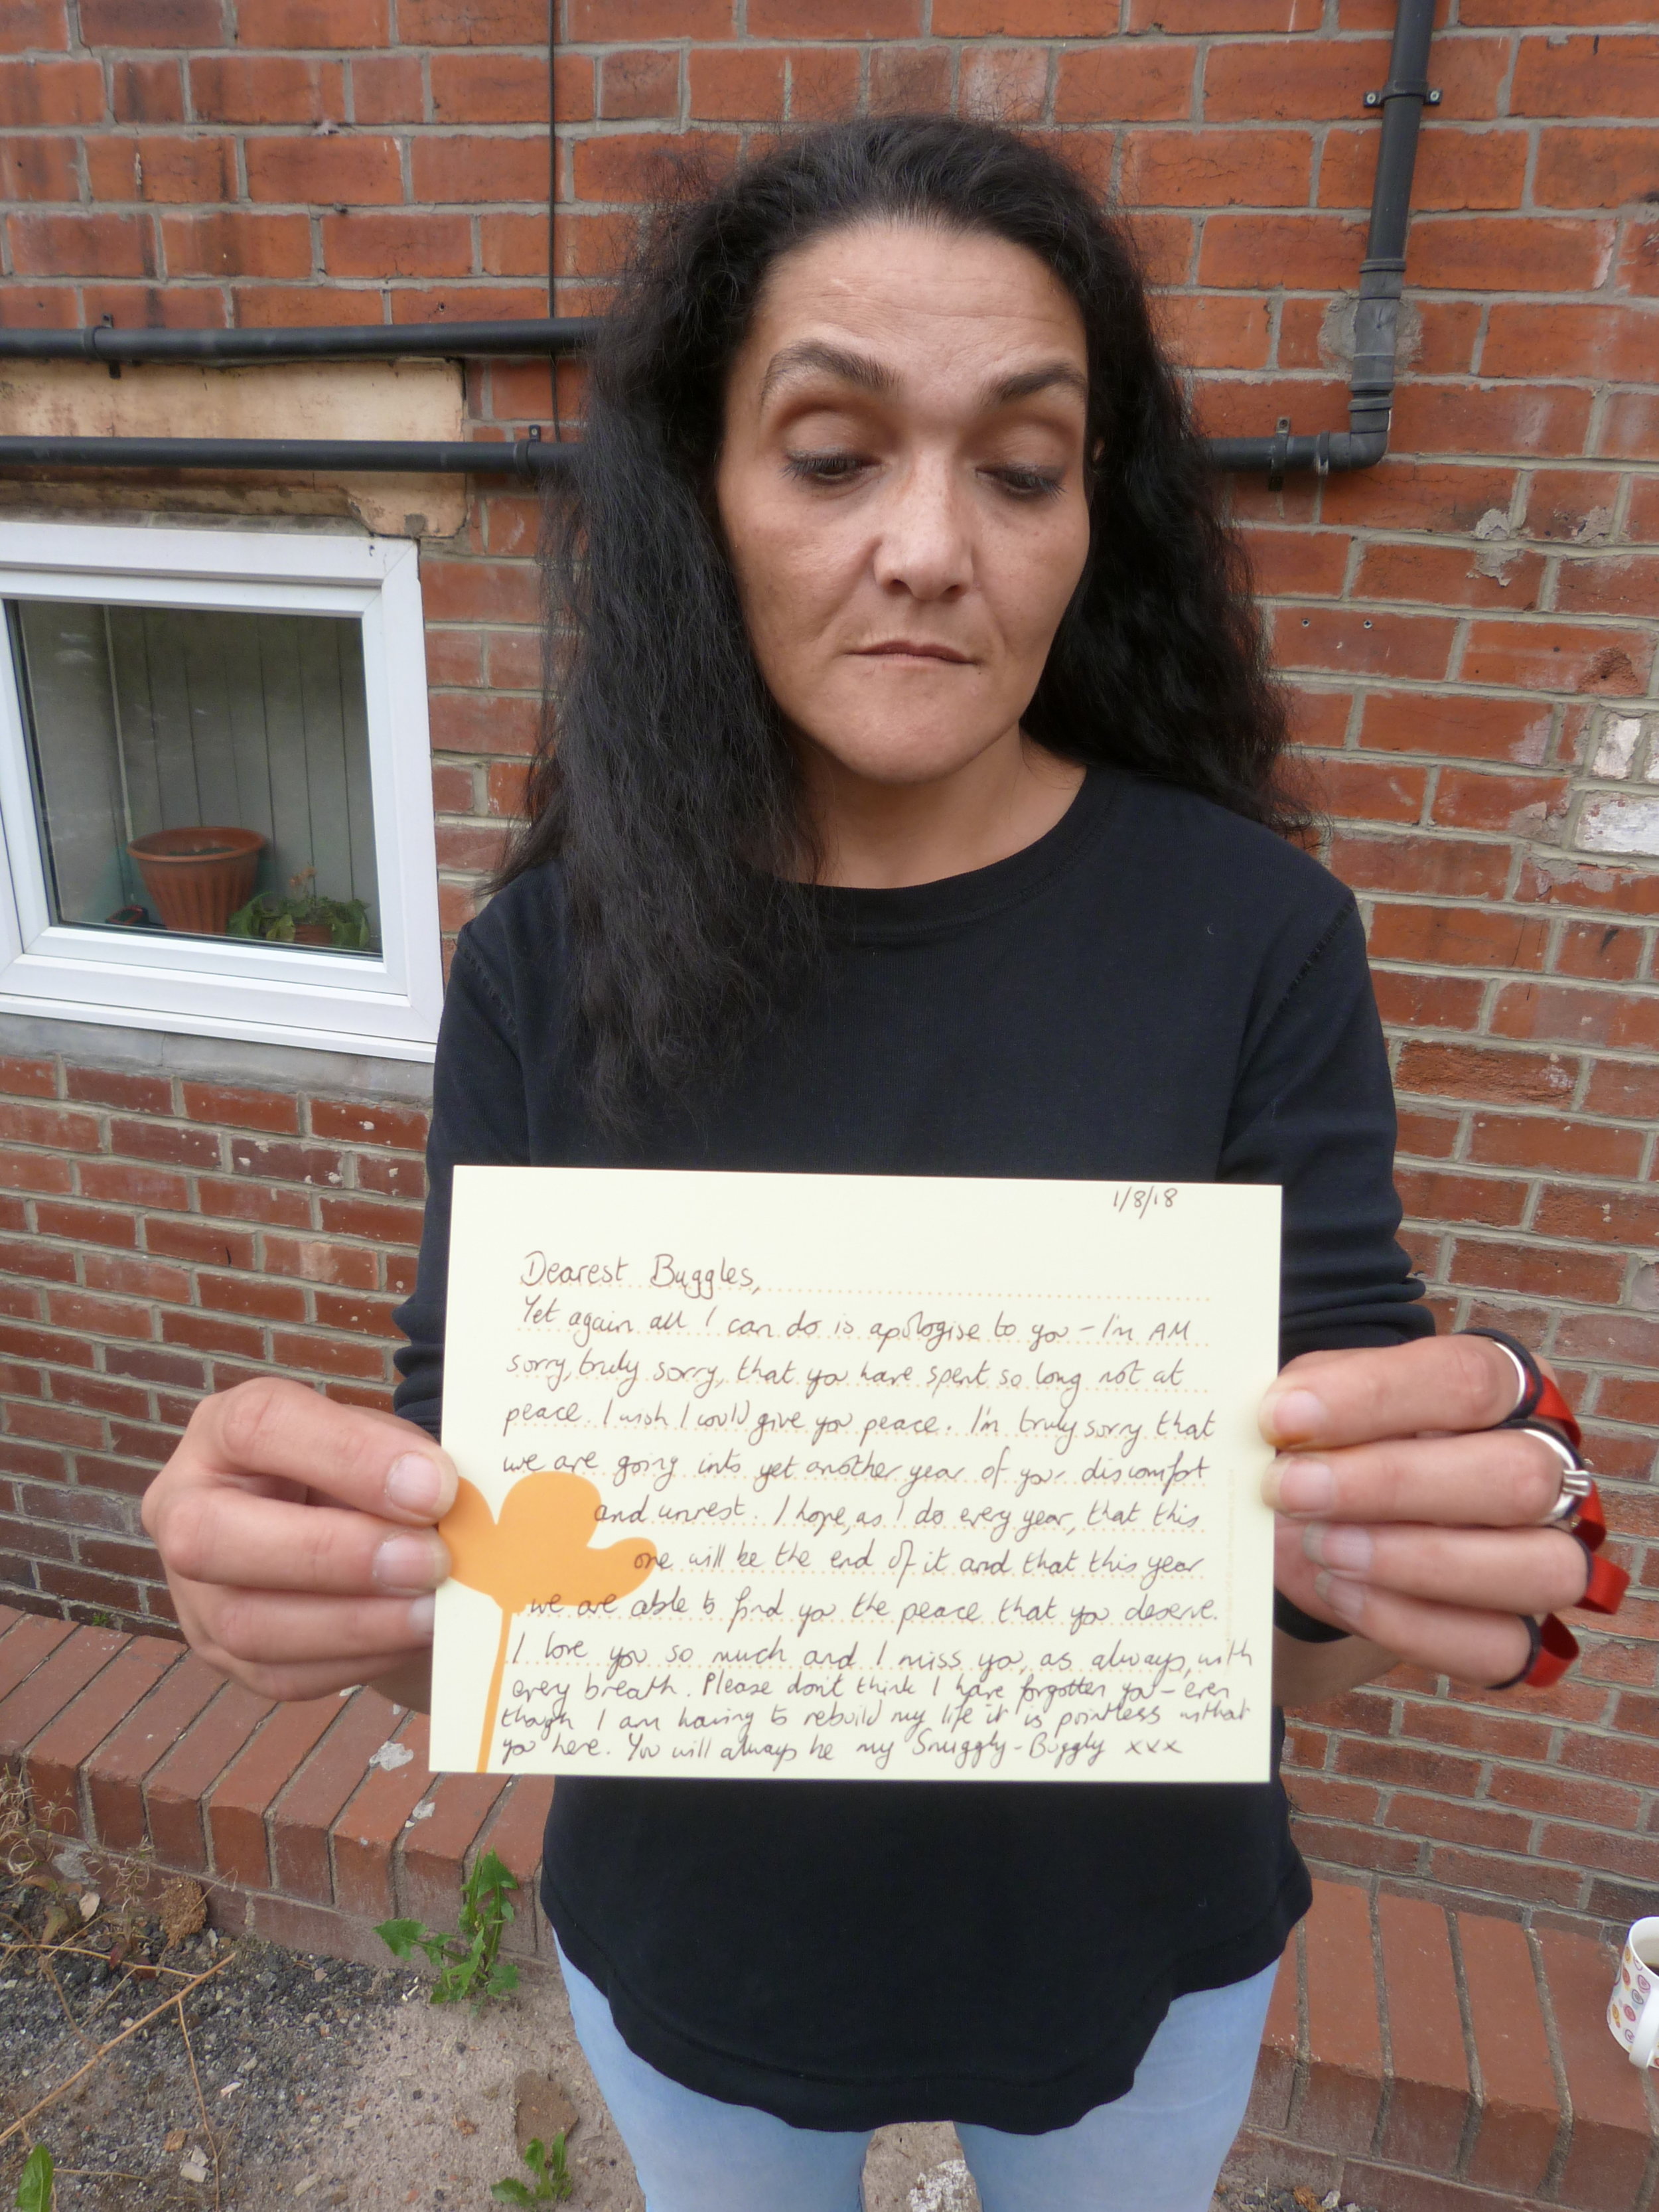 1/8/18
Dearest Buggles,
Yet again all I can do is apologise to you - I'm AM
sorry, truly sorry, that you have spent so long not at
peace. I wish I could give you peace. I'm truly sorry that
we are going into yet another year of your discomfort
and unrest. I hope, as I do every year, that this
one will be the end of it and that this year
we are able to find you the peace that you deserve.
I love you so much and I miss you, as always, with
every breath. Please don't think I have forgotten you - even
though I am having to rebuild my life it is pointless without
you here. You will always be my Snuggly-Buggly xxx